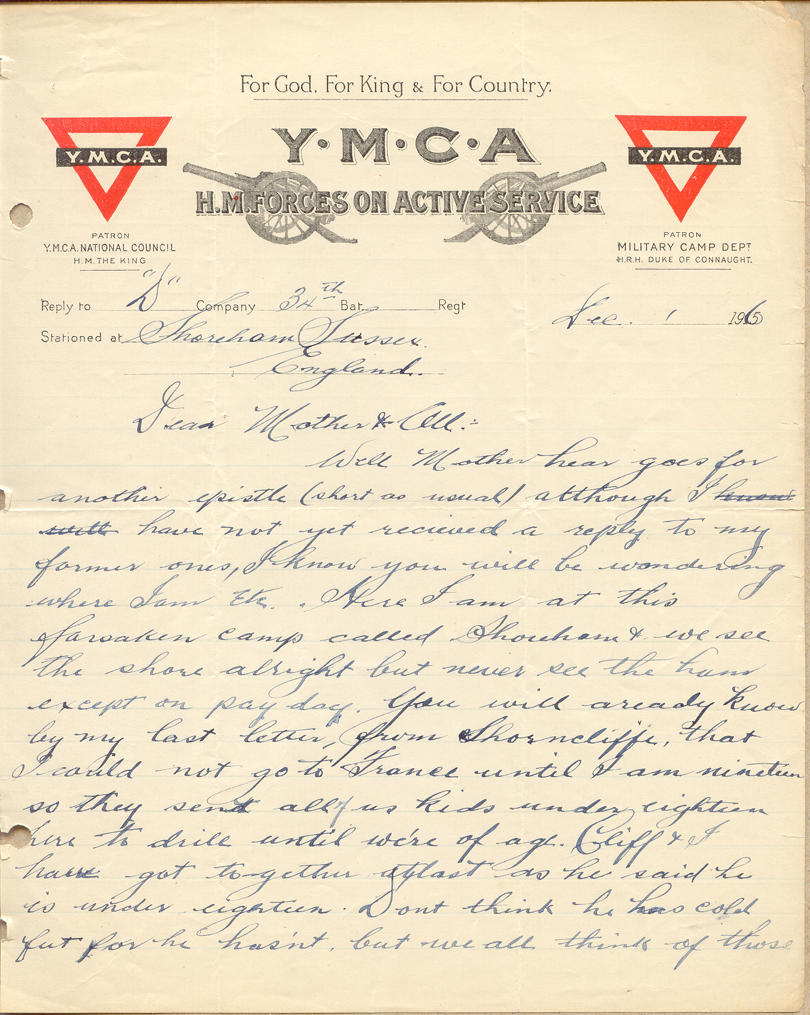 For God, For King & For Country.
Y.M.C.A
H.M. FORCES ON ACTIVE SERVICE
Y.M.C.A.
PATRON
Y.M.C.A. NATIONAL COUNCIL
H.M. THE KING
Y.M.C.A.
PATRON
MILITARY CAMP DEPT
H.R.H. DUKE OF CONNAUGHT.
Reply to "D" Company 34th Bat. Regt
Dec. 1 1916
Stationed at Shoreham Sussex.
England.
Dear Mother & All:-
Well Mother hear goes for
another epistle (short as usual) although I know
will have not yet recieved a reply to my
former ones, I know you will be wondering
where I am Etc. Here I am at this
forsaken camp called Shoreham & we see
the shore alright but never see the ham
except on pay day. You will aready know
by my last letter, from Shorncliffe, that
I could not go to France until I am nineteen
so they send all of us kids under eighteen
here to drill until we're of age. Cliff & I
have got to-gether at last as he said he
is under eighteen. Dont think he has cold
fut for he hasn't, but we all think of those